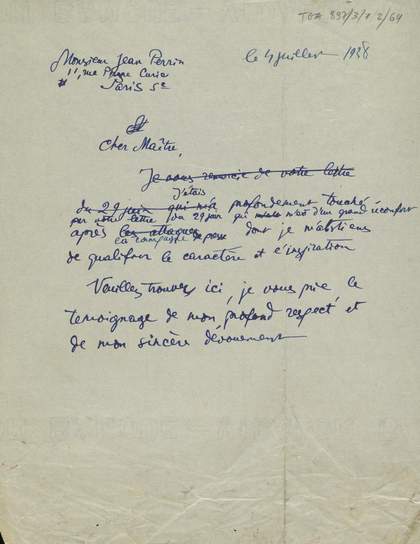 TOA 897/3/1 2/64
Monsieur Jean Perrin
11, rue Pierre Curie
Paris 5e
le 4 juillet 1938
Cher Maître,
Je vous remercie de votre lettre
J'étais
du 29 juin qui m'a profondement touché
par votre lettre du 29 juin qui m'est d'un grand réconfort
après les attaques dont je m'abstiens
la campagne de presse
de qualifier le caractère et l'inspiration
Veuillez trouver ici, je vous prie le
temoignage de mon profond respect et
de mon sincère dévouement